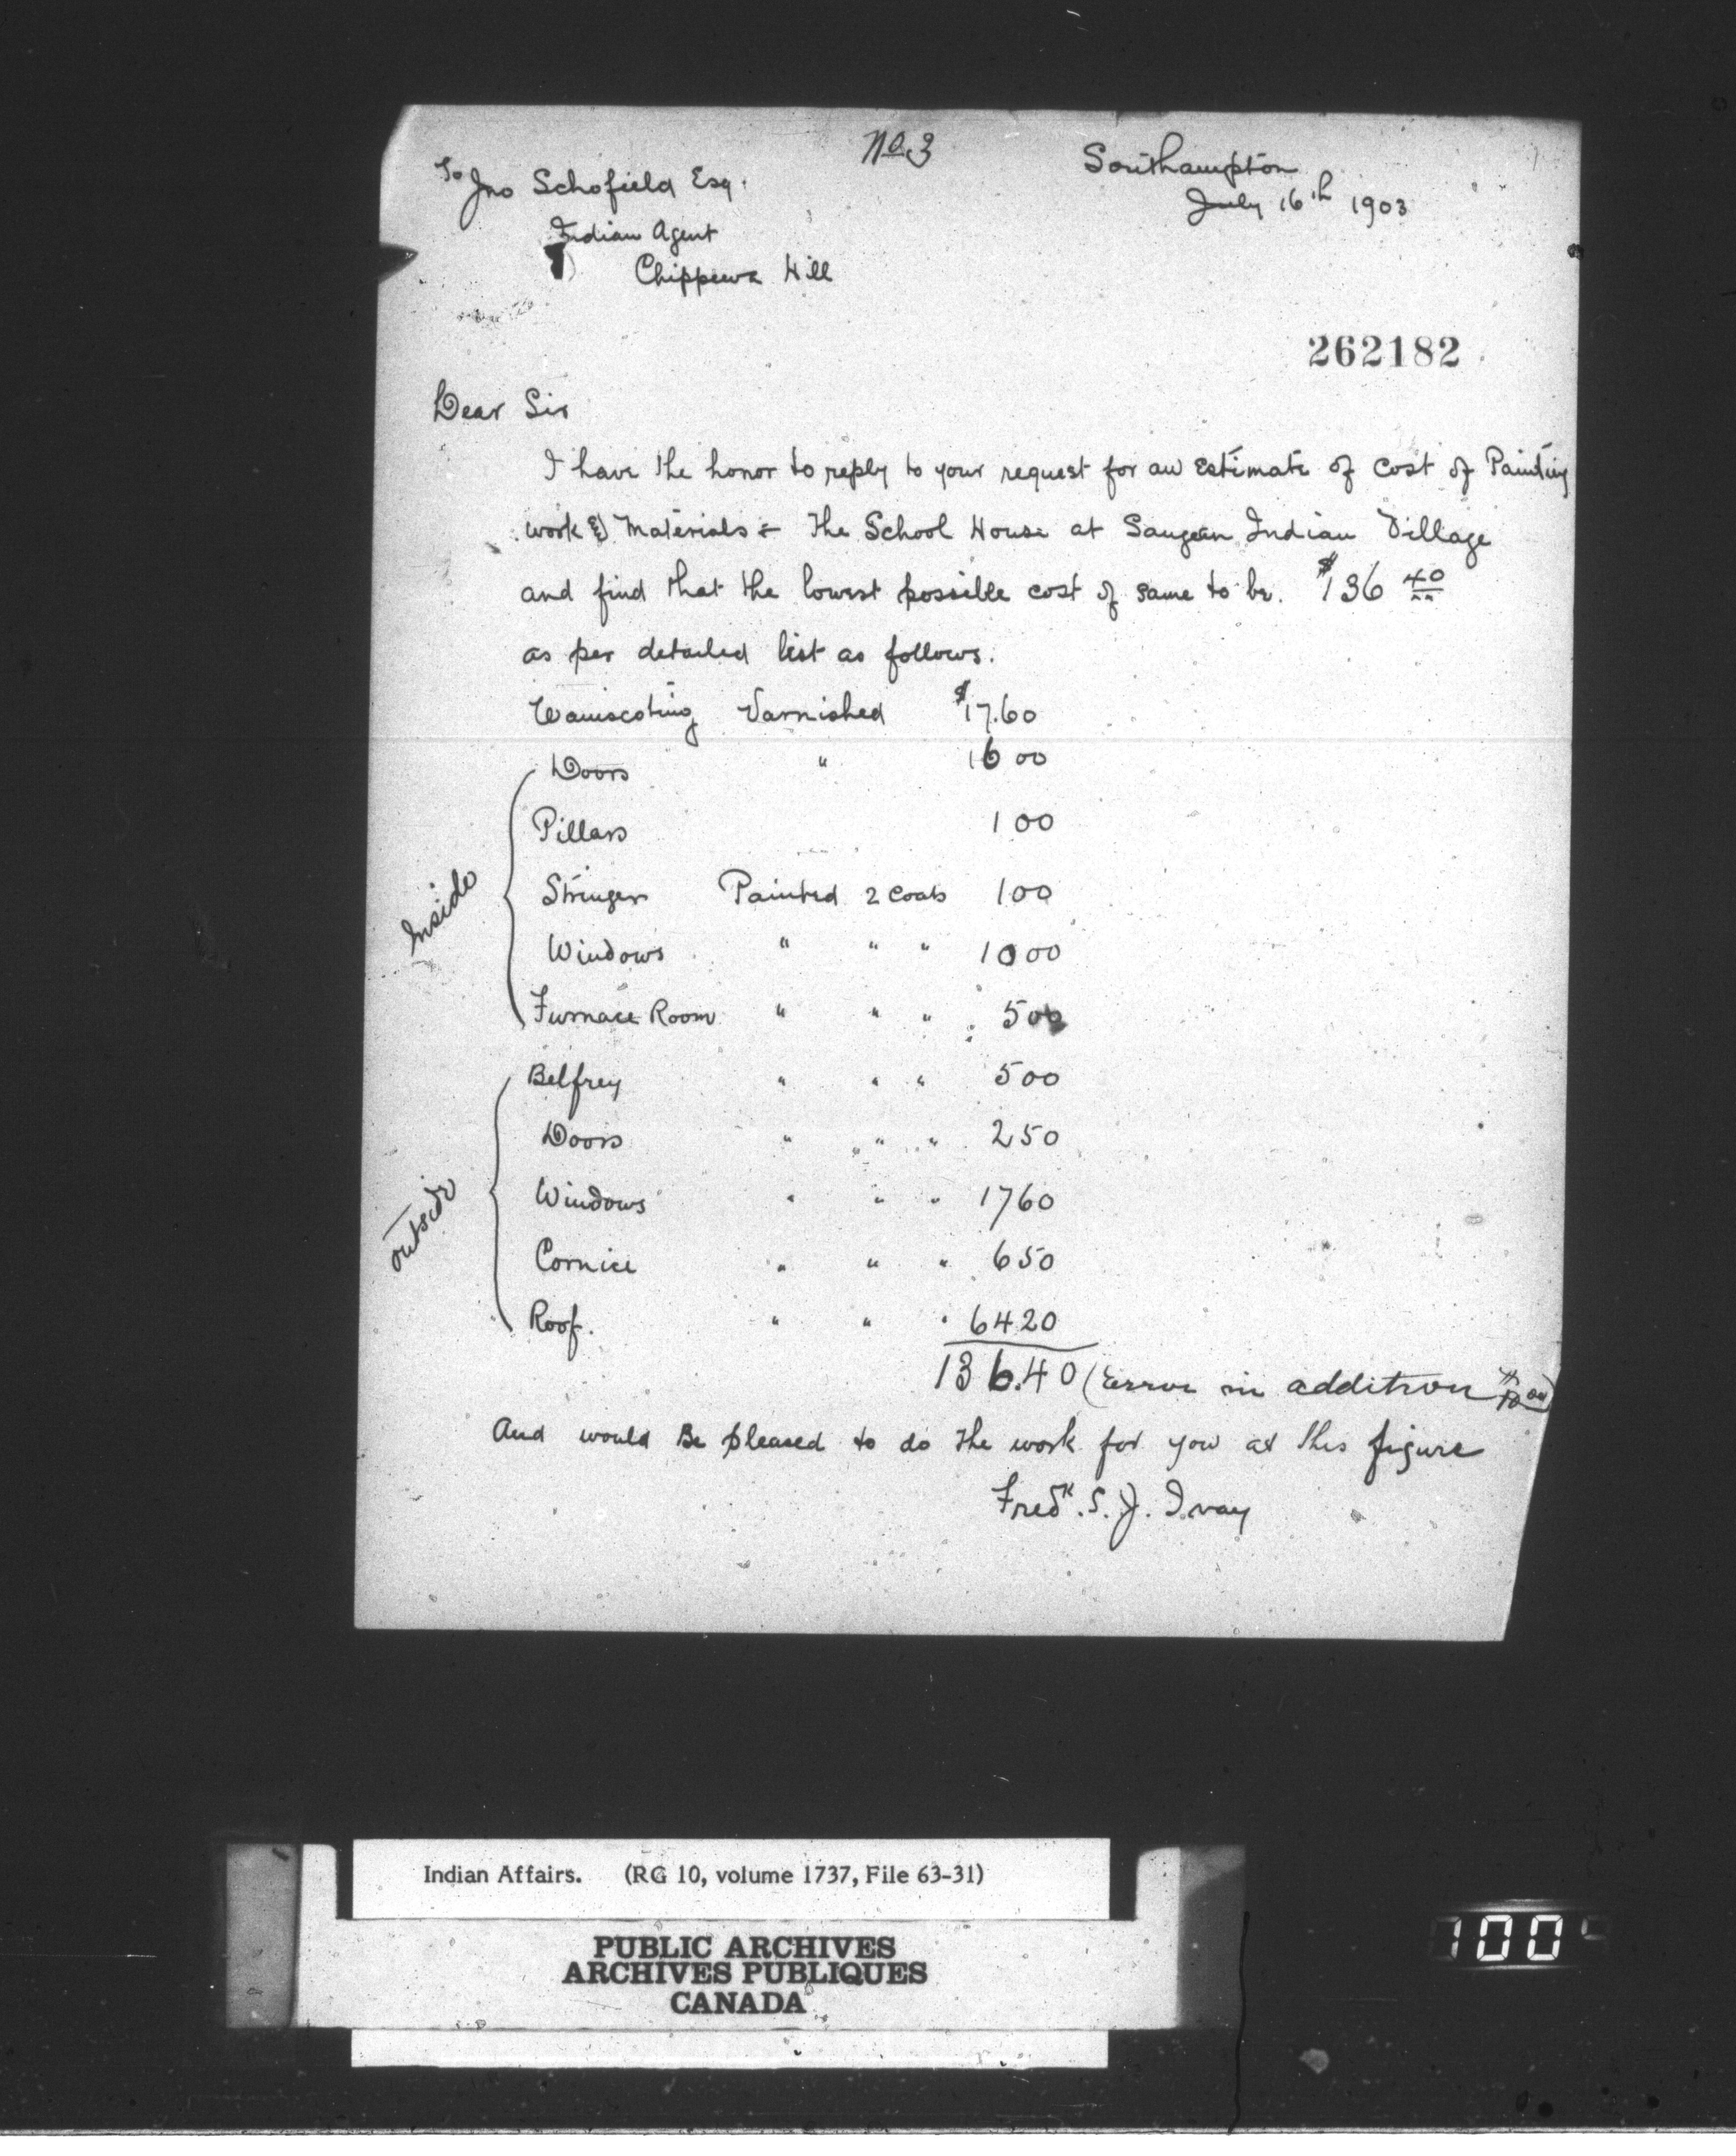 No 3
Southampton
July 16th 1903
To Jno Schofield Esq.
Indian Agent
Chippewa Hill
262182
Dear Sir
I have the honor to reply to your request for an Estimate of Cost of Painting
work & Materials & The School House at Saugeen Indian Village
and find that the lowest possible cost of same to be. $136 40
as per detailed list as follows.
Wainscoting Varnished $17.60
Doors " 16 00
Pillars 1 00
Stringers Painted 2 Coats 1 00
Windows " " " 10 00
Furnace Room " " " 5 00
Inside
Belfrey " " " 5 00
Doors " " " 2 50
Windows " " " 17 60
Cornice " " " 6 50
Roof. " " " 64 20
outside
136.40 (Error in addition
And would Be pleased to do the work for you at this figure
Fredk. S. J. Ivay
Indian Affairs. (RG 10, volume 1737, File 63-31)
PUBLIC ARCHIVES
ARCHIVES PUBLIQUES
CANADA